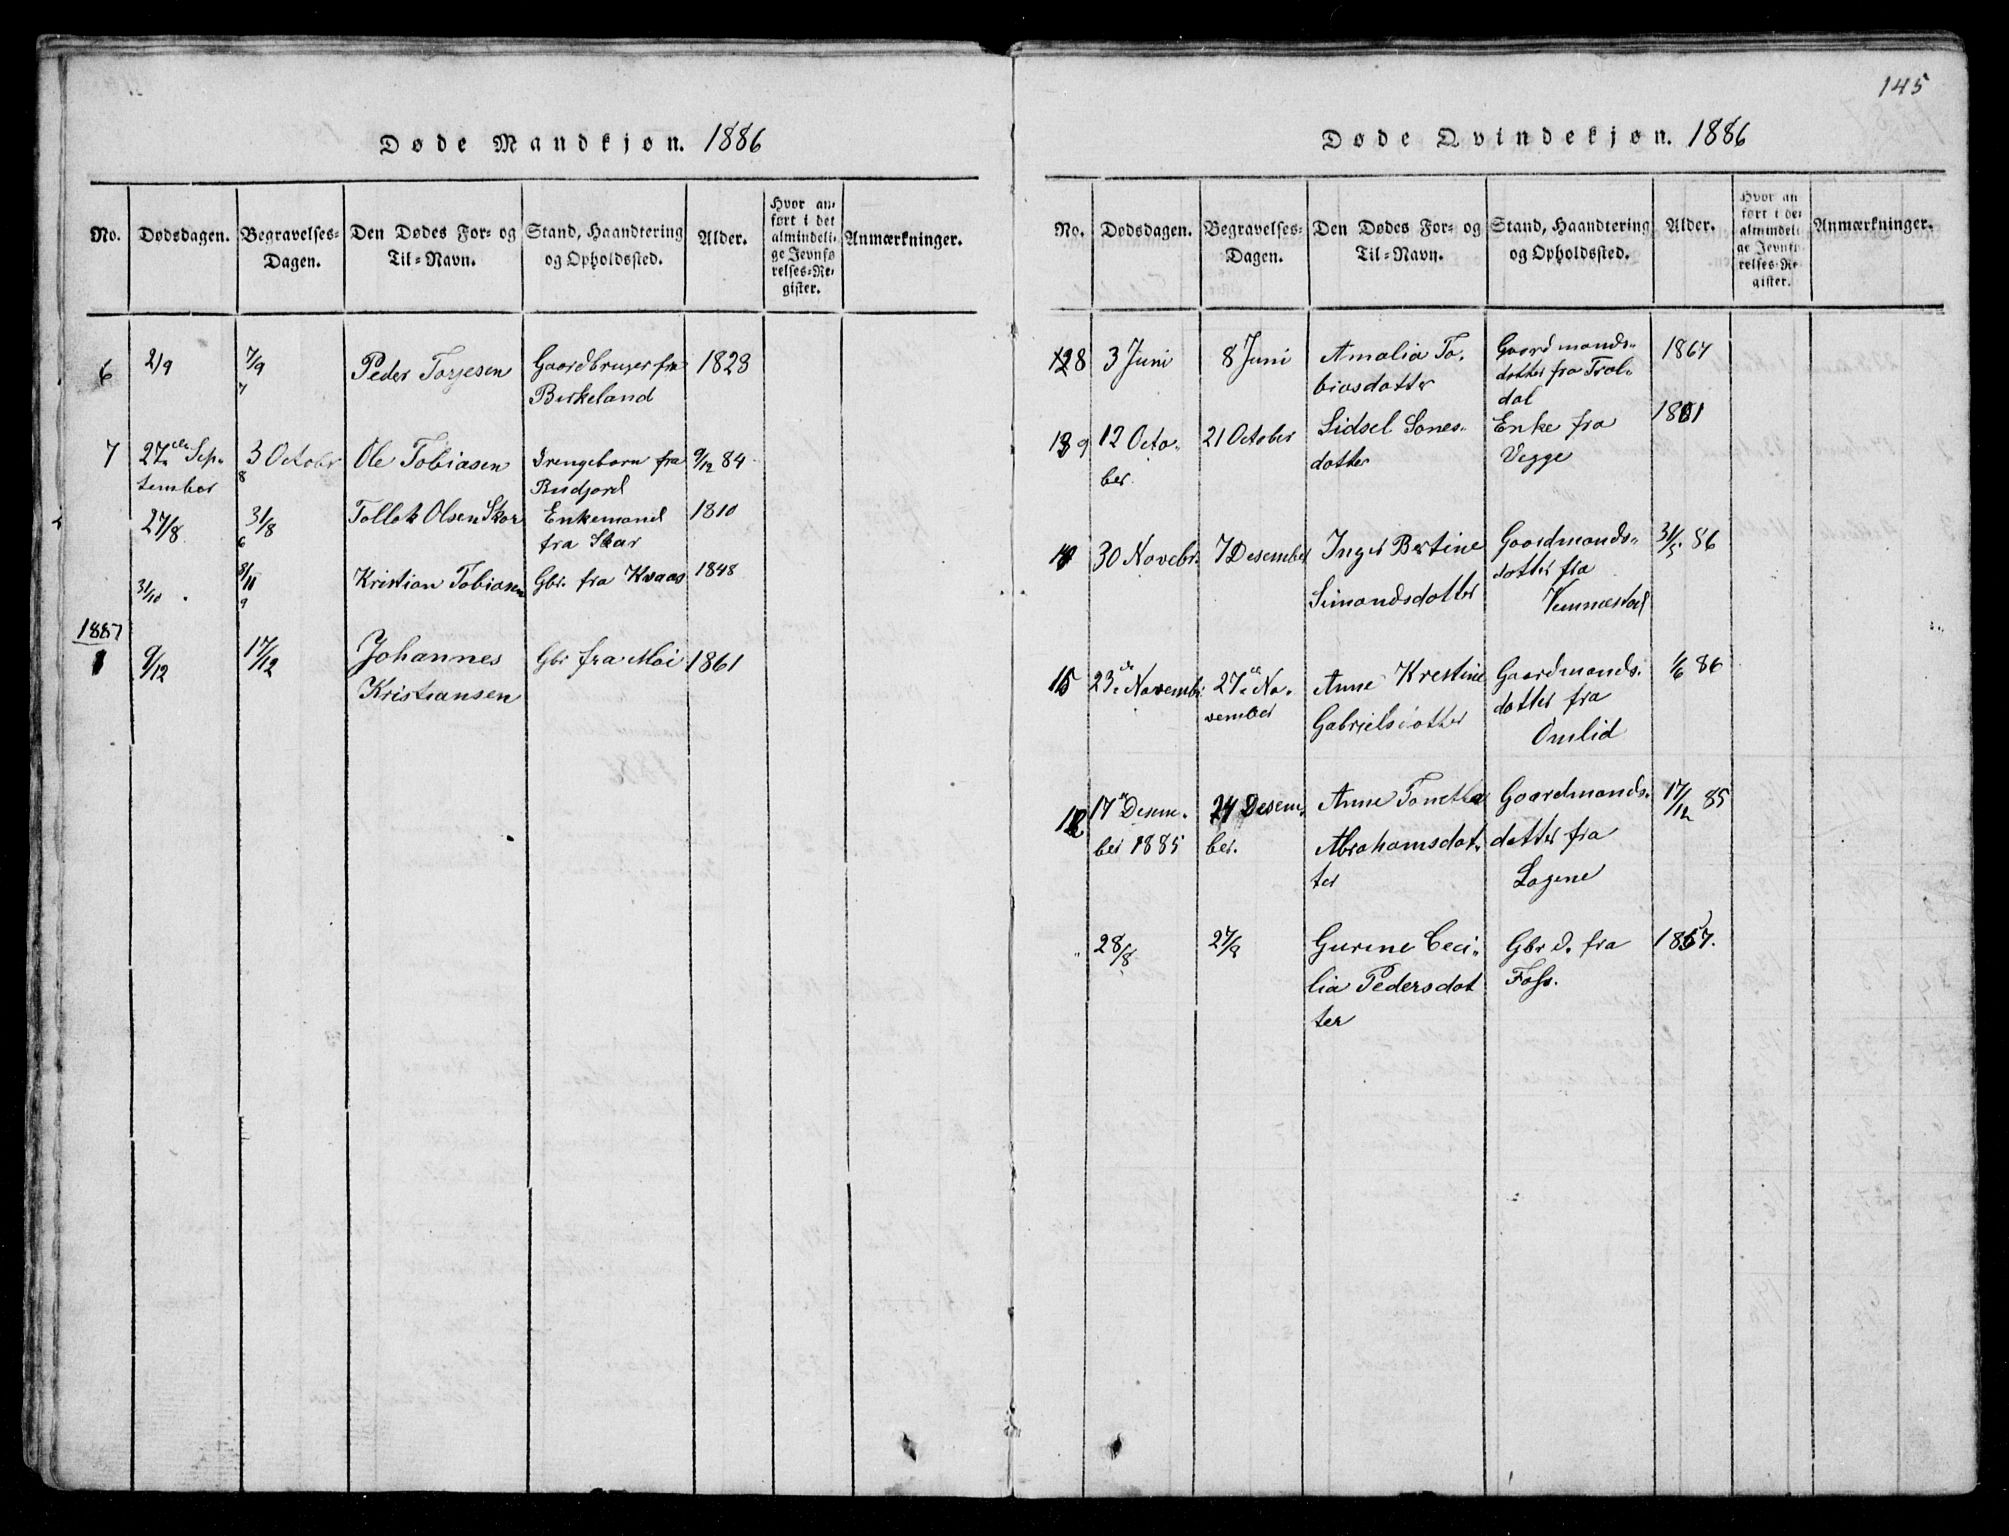 145
Døde Mandkjøn. 1886
No.
Dødsdagen.
Begravelses-
Dagen.
Den Dødes For- og
Til-Navn.
Stand, Haandtering
og Opholdssted.
Alder.
Hvor an-
ført i det
almindeli-
ge Jevnfø
relses-Re-
gister.
Anmærkninger.
6
2/9
7/9
7
Peder Torjesen
Gaardbruger fra
Birkeland
1823
7
27de Sep-
tember
3 Octobr
8
Ole Tobiasen
Drengebarn fra
9/12 84
27/8
31/8
6
Tollak Olsen Skar
Enkemand
fra Skar
1810
31/10
8/11
9
Kristian Tobiasen
Gbr. fra Kvaas
1848
1887
1
9/12
17/12
Johannes
Kristiansen
Gbr fra Moi
1861
Døde Qvindekjøn. 1886
No.
Dødsdagen.
Begravelses-
Dagen.
Den Dødes For- og
Til-Navn.
Stand, Haandtering
og Opholdssted.
Alder.
Hvor an
ført i de
almindeli
ge Jevnfø
relses-Re
gister.
Anmærkninger.
3 Juni
8 Juni
Amalia To-
biasdatter
Gaardmands-
datter fra Trol-
dal
1867
9
12 Octo-
ber.
21 October
Sidsel Sones-
datter
Enke fra
Vegge
30 Novebr.
7 Desember
Inger Bertine
Simondsdatter
Gaardmands-
datter fra
Vemmestad
31/5 86
23de Novembr
27de No-
vember
Anne Krestine
Gabrielsdatter
Gaardmands-
datter fra
Omlid
1/6 86
17de Desem-
ber 1885
24 Desem-
ber.
Anne Tonetha
Abrahamsdat-
ter
Gaardmands-
datter fra
Lagene
17/12 85
28/8
27/8
Gurine Ceci-
lia Pedersdat
ter
Gbr d. fra
Foss.
1857.